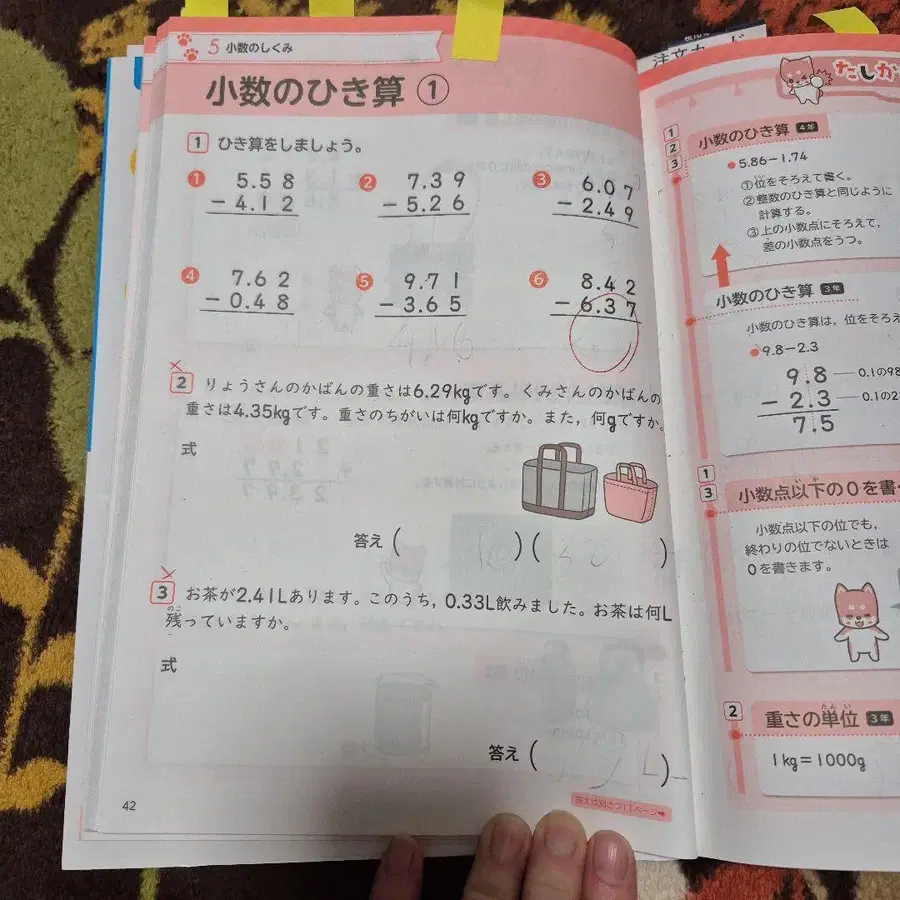 5 小数のしくみ
小数のひき算 ①
1 ひき算をしましょう。
❶ 5.58
−4.12
❷ 7.39
−5.26
❸ 6.07
−2.49
❹ 7.62
−0.48
❺ 9.71
−3.65
❻ 8.42
−6.37
2 りょうさんのかばんの重さは6.29kgです。くみさんのかばんの
重さは4.35kgです。重さのちがいは何kgですか。また，何gですか。
式
答え（ ）（ ）
3 お茶が2.41Lあります。このうち，0.33L飲みました。お茶は何L
残っていますか。
のこ
式
答え（ ）
42
答えは別さつ11ページ
注文カード
たしか
1
2
3
小数のひき算 4年
5.86−1.74
①位をそろえて書く。
②整数のひき算と同じように
計算する。
③上の小数点にそろえて，
差の小数点をうつ。
小数のひき算 3年
小数のひき算は，位をそろえ
9.8−2.3
9.8 0.1の98
−2.3 0.1の2
7.5
1
3
小数点以下の0を書
小数点以下の位でも，
終わりの位でないときは
0を書きます。
2 重さの単位 3年
たんい
1kg＝1000g